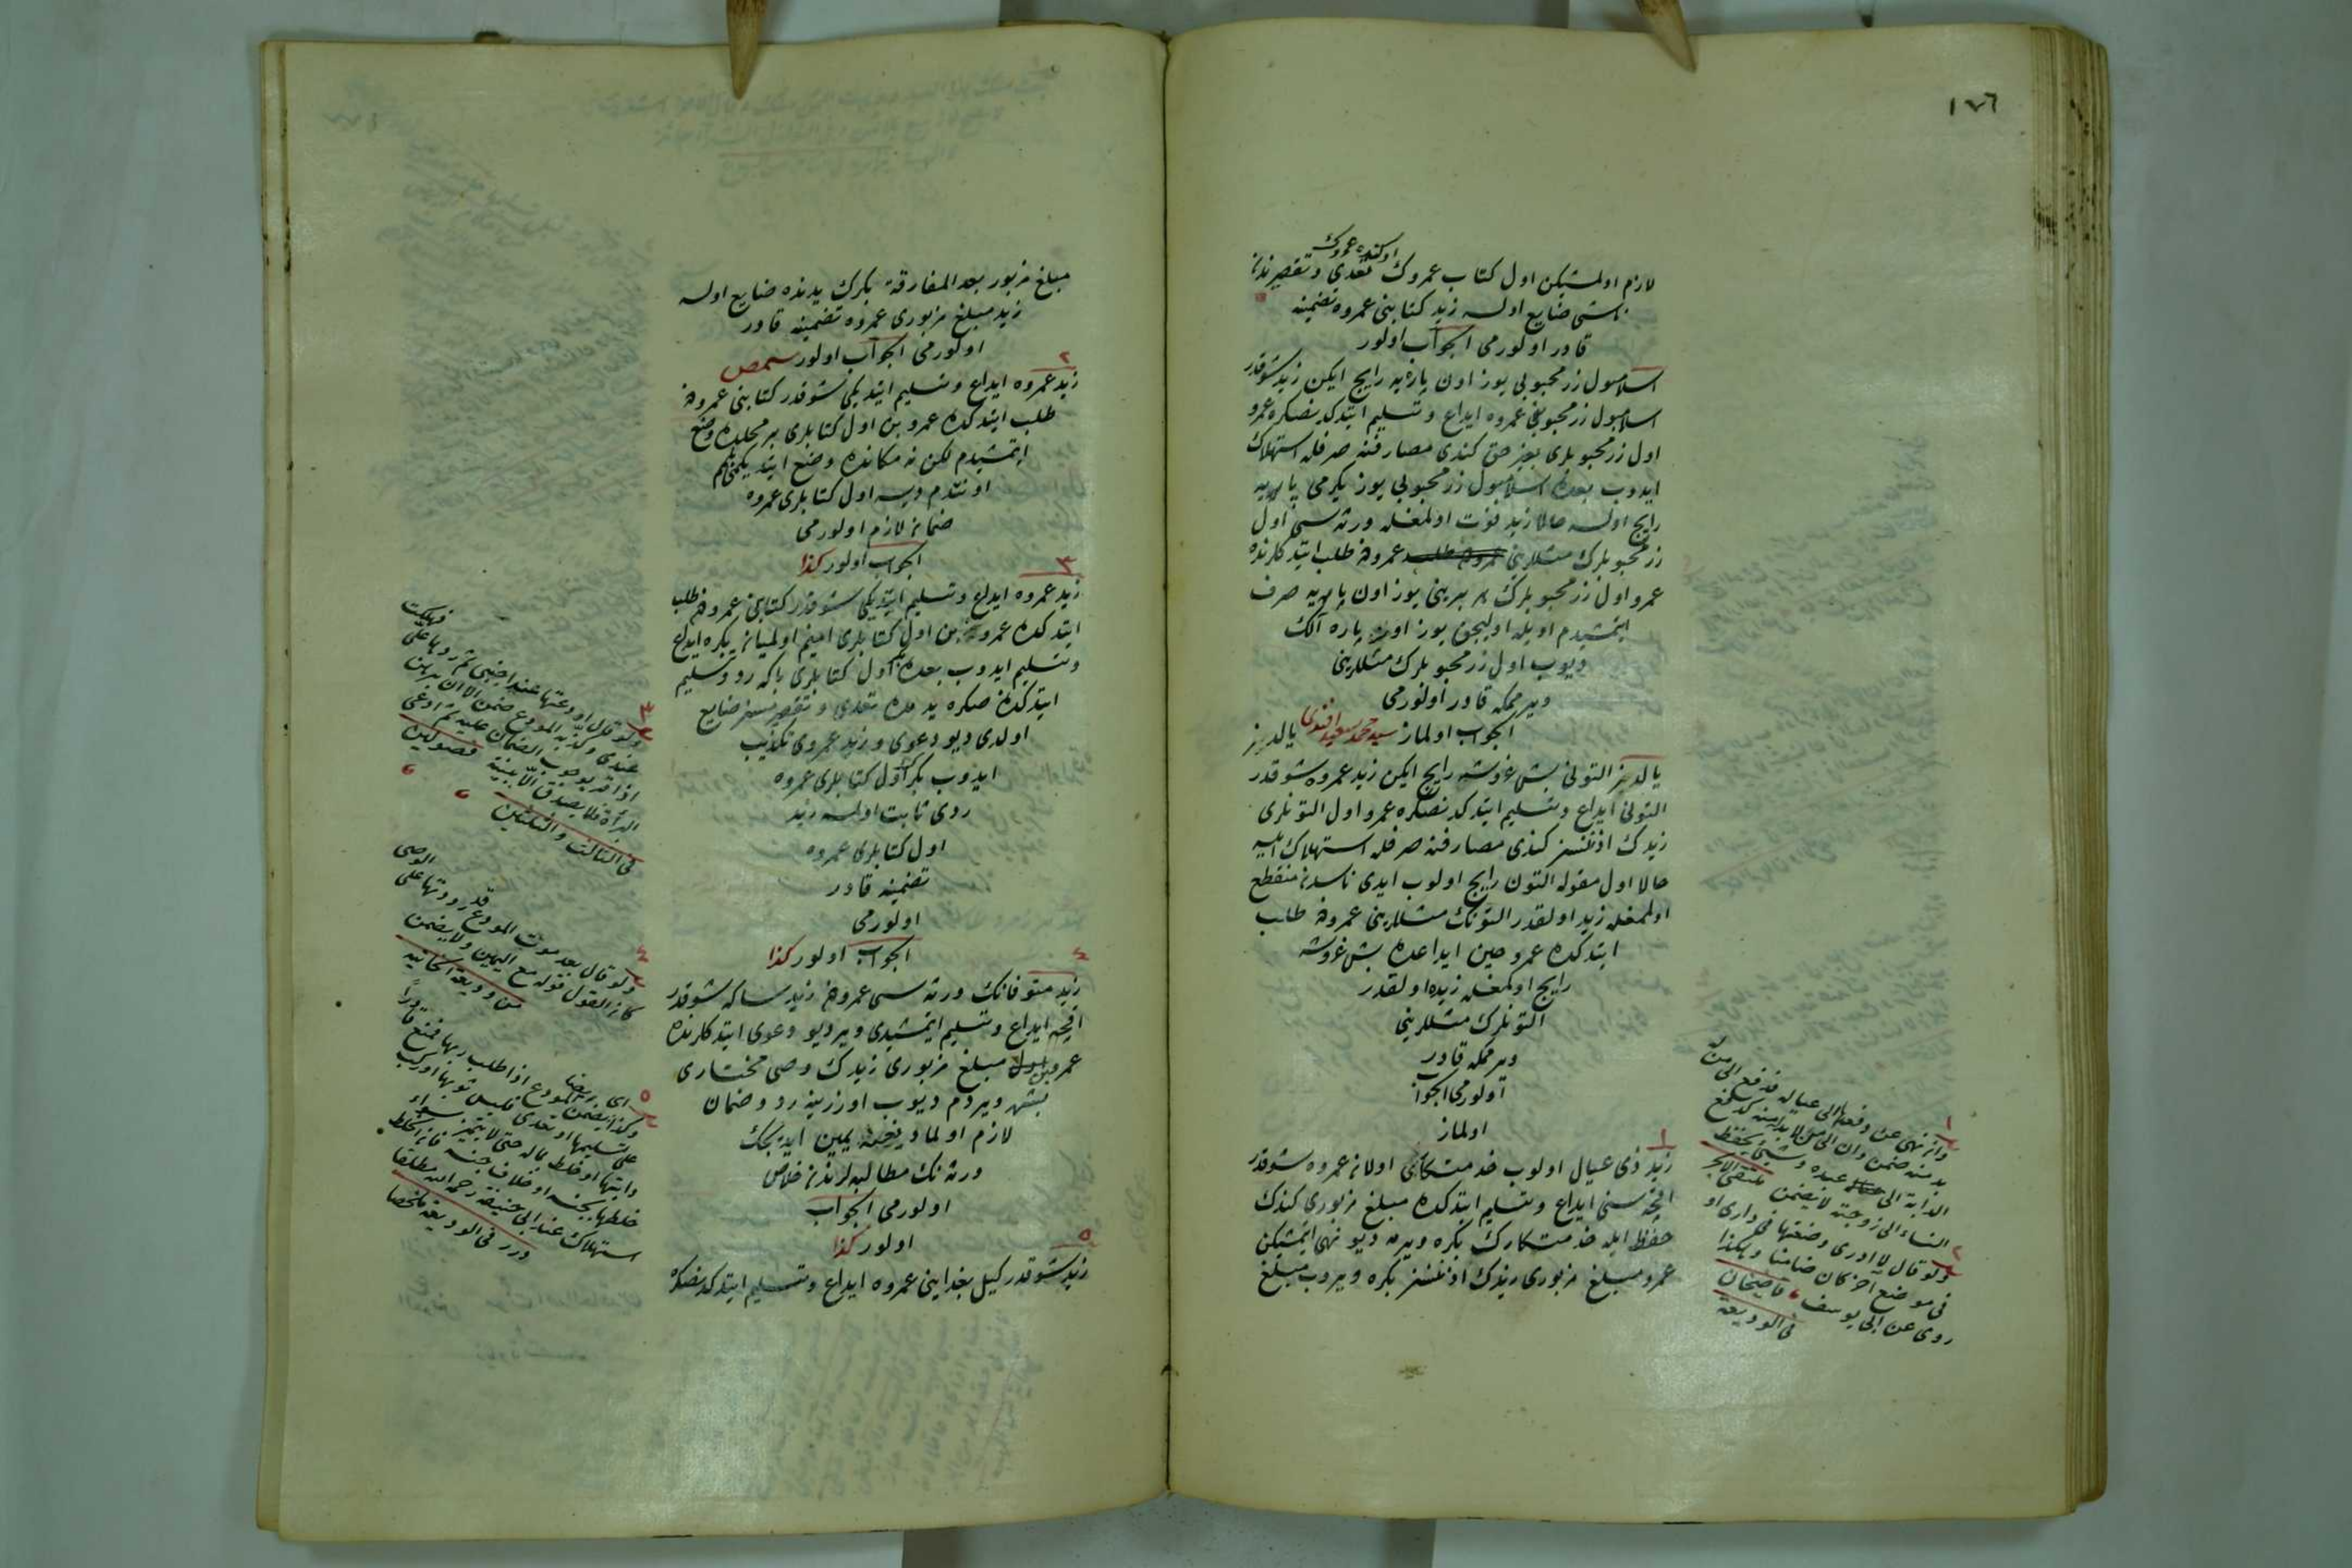 ١٧٦
لازم اولمشيكن اول كتاب عمروك تعدى و تقصيرندن
ناشى ضايع اولسه زيد كتابنى عمروه تضمينه
قادر اولورمى الجواب اولور
اسلامبول زر محبوبى يوز اون پاره يه رايج ايكن زيد شوقدر
اسلامبول زر محبوبنى عمروه ايداع و تسليم ايتدكدنصكره عمرو
اول زر محبوبلرى بغير حق كندى مصارفنه صرفله استهلاك
ايدوب بعده اسلامبول زر محبوبى يوز يكرمى پاره يه
رايج اولسه حالا زيد فوت اولمغله ورثه سى اول
زر محبوبلرك مثللرينى عمرودن طلب ايتدكلرنده
عمرو اول زر محبوبلرك هر بيرينى يوز اون پاره يه صرف
ايتمشيدم اويله اوليجق يوز اون پاره آلك
ديوب اول زر محبوبلرك مثللرينى
ويرممكه قادر اولورمى
الجواب اولماز سيد محمد سعيد افندى
يالديز التونى بش غروشه رايج ايكن زيد عمروه شوقدر
التونى ايداع و تسليم ايتدكدنصكره عمرو اول التونلرى
زيدك اذنسز كندى مصارفنه صرفله استهلاك ايليوب
حالا اول مقوله التون رايج اولوب ايدى ناسدن منقطع
اولمغله زيد اولقدر التونك مثللرينى عمرودن طلب
ايتدكده عمرو حين ايداعده بش غروشه
رايج اولمغله زيده اولقدر
التونلرك مثللرينى
ويرممكه قادر
اولورمى الجواب
اولماز
١
زيد ذى عيال اولوب خدمتكارى اولان عمروه شوقدر
اقچه سنى ايداع و تسليم ايتدكده مبلغ مزبورى كندك
حفظ ايله خدمتكارك بكره ويرمه ديو نهى ايتمشيكن
عمرو مبلغ مزبورى زيدك اذنسز بكره ويروب مبلغ
١
وان نهى عن دفعها الى عياله فدفع الى من له
بد منه ضمن وان الى من لا بد له منه كدفع
الدابة الى عبده وشئ يحفظه
النساء الى زوجته لا يضمن ملتقى الابحر
٢
ولو قال لا ادرى وضعتها فى دارى او
فى موضع آخر كان ضامنا وهكذا
روى عن ابى يوسف قاضيخان
فى الوديعة
مبلغ مزبور بعد المفارقة بكرك يدنده ضايع اولسه
زيد مبلغ مزبورى عمروه تضمينه قادر
اولورمى الجواب اولور
٢
زيد عمروه ايداع و تسليم ايتديكى شوقدر كتابنى عمرودن
طلب ايتدكده عمرو بن اول كتابلرى بر محلده وضع
ايتمشيدم لكن نه مكانده وضع ايتديكمى
اونتدم ديسه اول كتابلرى عمروه
ضمان لازم اولورمى
الجواب اولور كذا
٣
زيد عمروه ايداع و تسليم ايتديكى شوقدر كتابنى عمرودن طلب
ايتدكده عمرو بن اول كتابلرى امينم اولميان بكره ايداع
و تسليم ايدوب بعده بكر اول كتابلرى باكه رد و تسليم
ايتدكدن صكره يدمده تعدى و تقصيرسز ضايع
اولدى ديو دعوى و زيد عمروى تكذيب
ايدوب بكر اول كتابلرى عمروه
ردى ثابت اولسه زيد
اول كتابلرى عمروه
تضمينه قادر
اولورمى
الجواب اولور كذا
٤
زيد متوفانك ورثه سى عمرودن زيد ساكه شوقدر
اقچه ايداع و تسليم ايتمشيدى وير ديو دعوى ايتدكلرنده
عمرو بن مبلغ مزبورى زيدك وصى مختارى
بشره ويردم ديوب اوزرينه رد و ضمان
لازم اولمادیغنه يمين ايديجك
ورثه نك مطالبه لرندن خلاص
اولورمى الجواب
اولور كذا
٥
زيد شوقدر كيل بغداينى عمروه ايداع و تسليم ايتدكدنصكره
٣
ولو قال اودعتها عند اجنبى ثم ردها علىّ فهلكت
عندى وكذبه المودع ضمن الا ان يبرهن
اذا اقر بوجوب الضمان عليه ثم ادعى
البراءة فلا يصدق الا ببينة فصولين
فى الثالث والثلاثين
٤
ولو قال بعد موت المودع قد رددتها على الوصى
كان القول قوله مع اليمين ولا يضمن
من وديعة الخانية
٥
وكذا يضمن المودع اذا طلب ربها فمنع قادرا
على تسليمها او تعدى فلبس ثوبها او ركب
دابتها او خلط بماله حتى لا يتميز سواء
خلطها بجنسه او خلاف جنسه فان الخلط
استهلاك عند ابى حنيفة رحمه الله مطلقا
درر فى الوديعة ملخصا